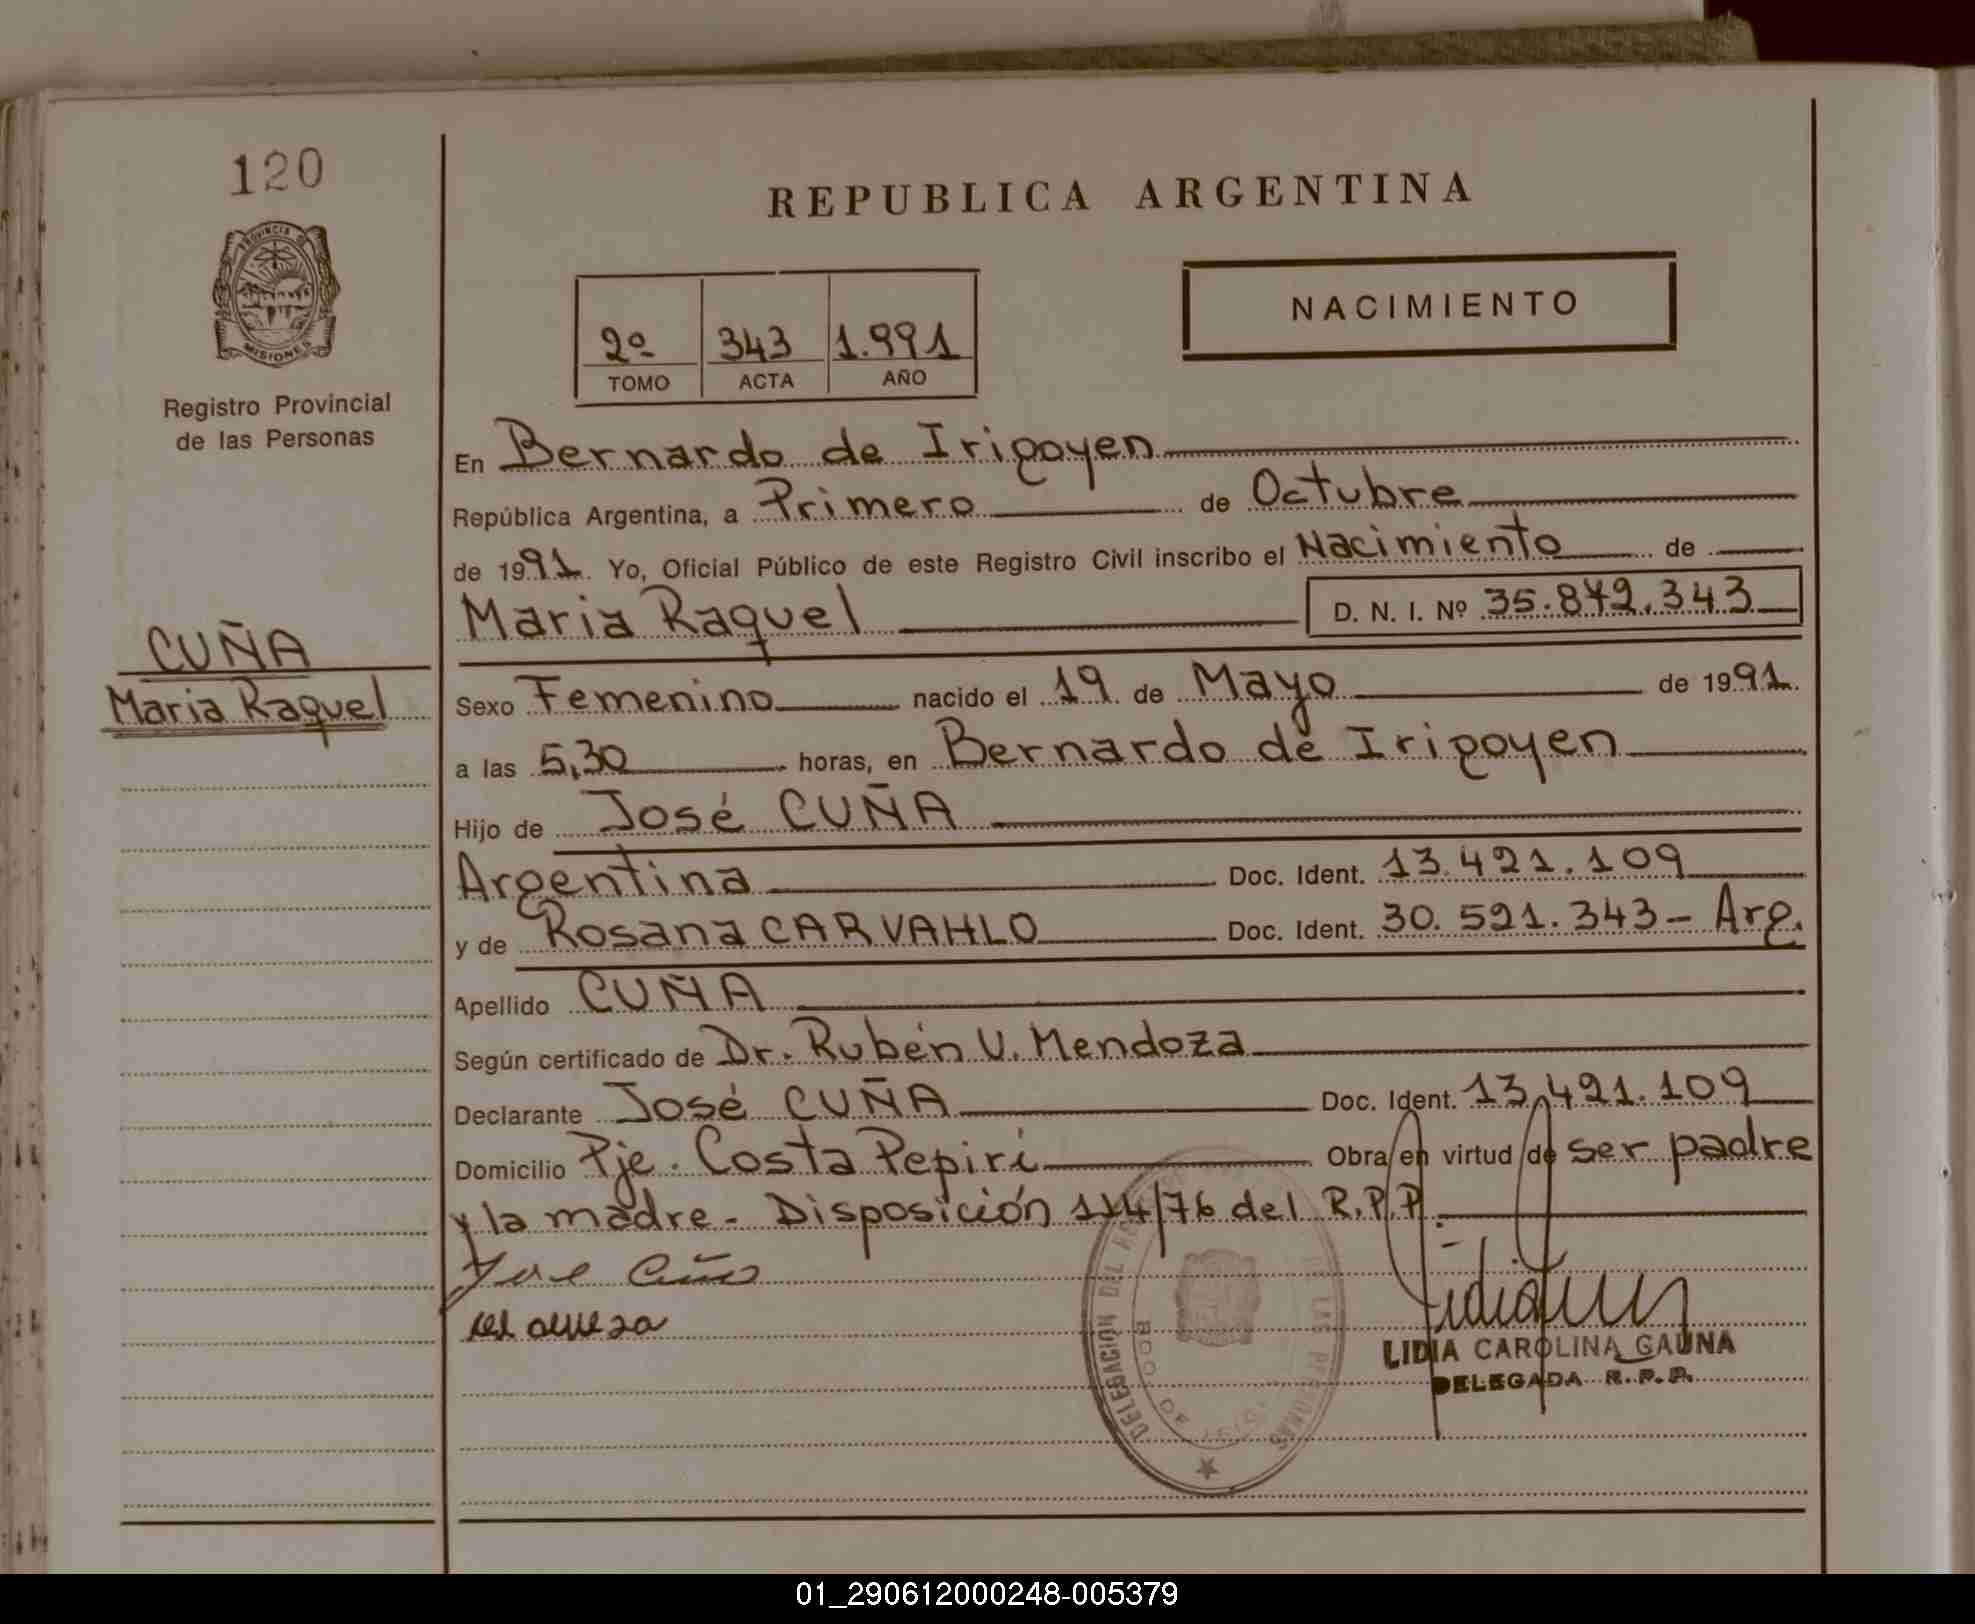 120
PROVINCIA DE
MISIONES
Registro Provincial
de las Personas
CUÑA
Maria Raquel
REPUBLICA ARGENTINA
2º 343 1.991
TOMO ACTA AÑO
NACIMIENTO
En Bernardo de Irigoyen
República Argentina, a Primero de Octubre
de 1991. Yo, Oficial Público de este Registro Civil inscribo el Nacimiento de
Maria Raquel D. N. I. Nº 35.872.343
Sexo Femenino nacido el 19 de Mayo de 1991.
a las 5,30 horas, en Bernardo de Irigoyen
Hijo de José CUÑA
Argentina Doc. Ident. 13.421.109
y de Rosana CARVAHLO Doc. Ident. 30.521.343- Arg.
Apellido CUÑA
Según certificado de Dr. Rubén V. Mendoza
Declarante José CUÑA Doc. Ident. 13.421.109
Domicilio Pje. Costa Pepirí Obra en virtud de ser padre
y la madre. Disposición 114/76 del R.P.P.
DELEGACIÓN DEL DE LAS PERSONAS
BDO. DE
LIDIA CAROLINA GAUNA
DELEGADA R.P.P.
01_290612000248-005379